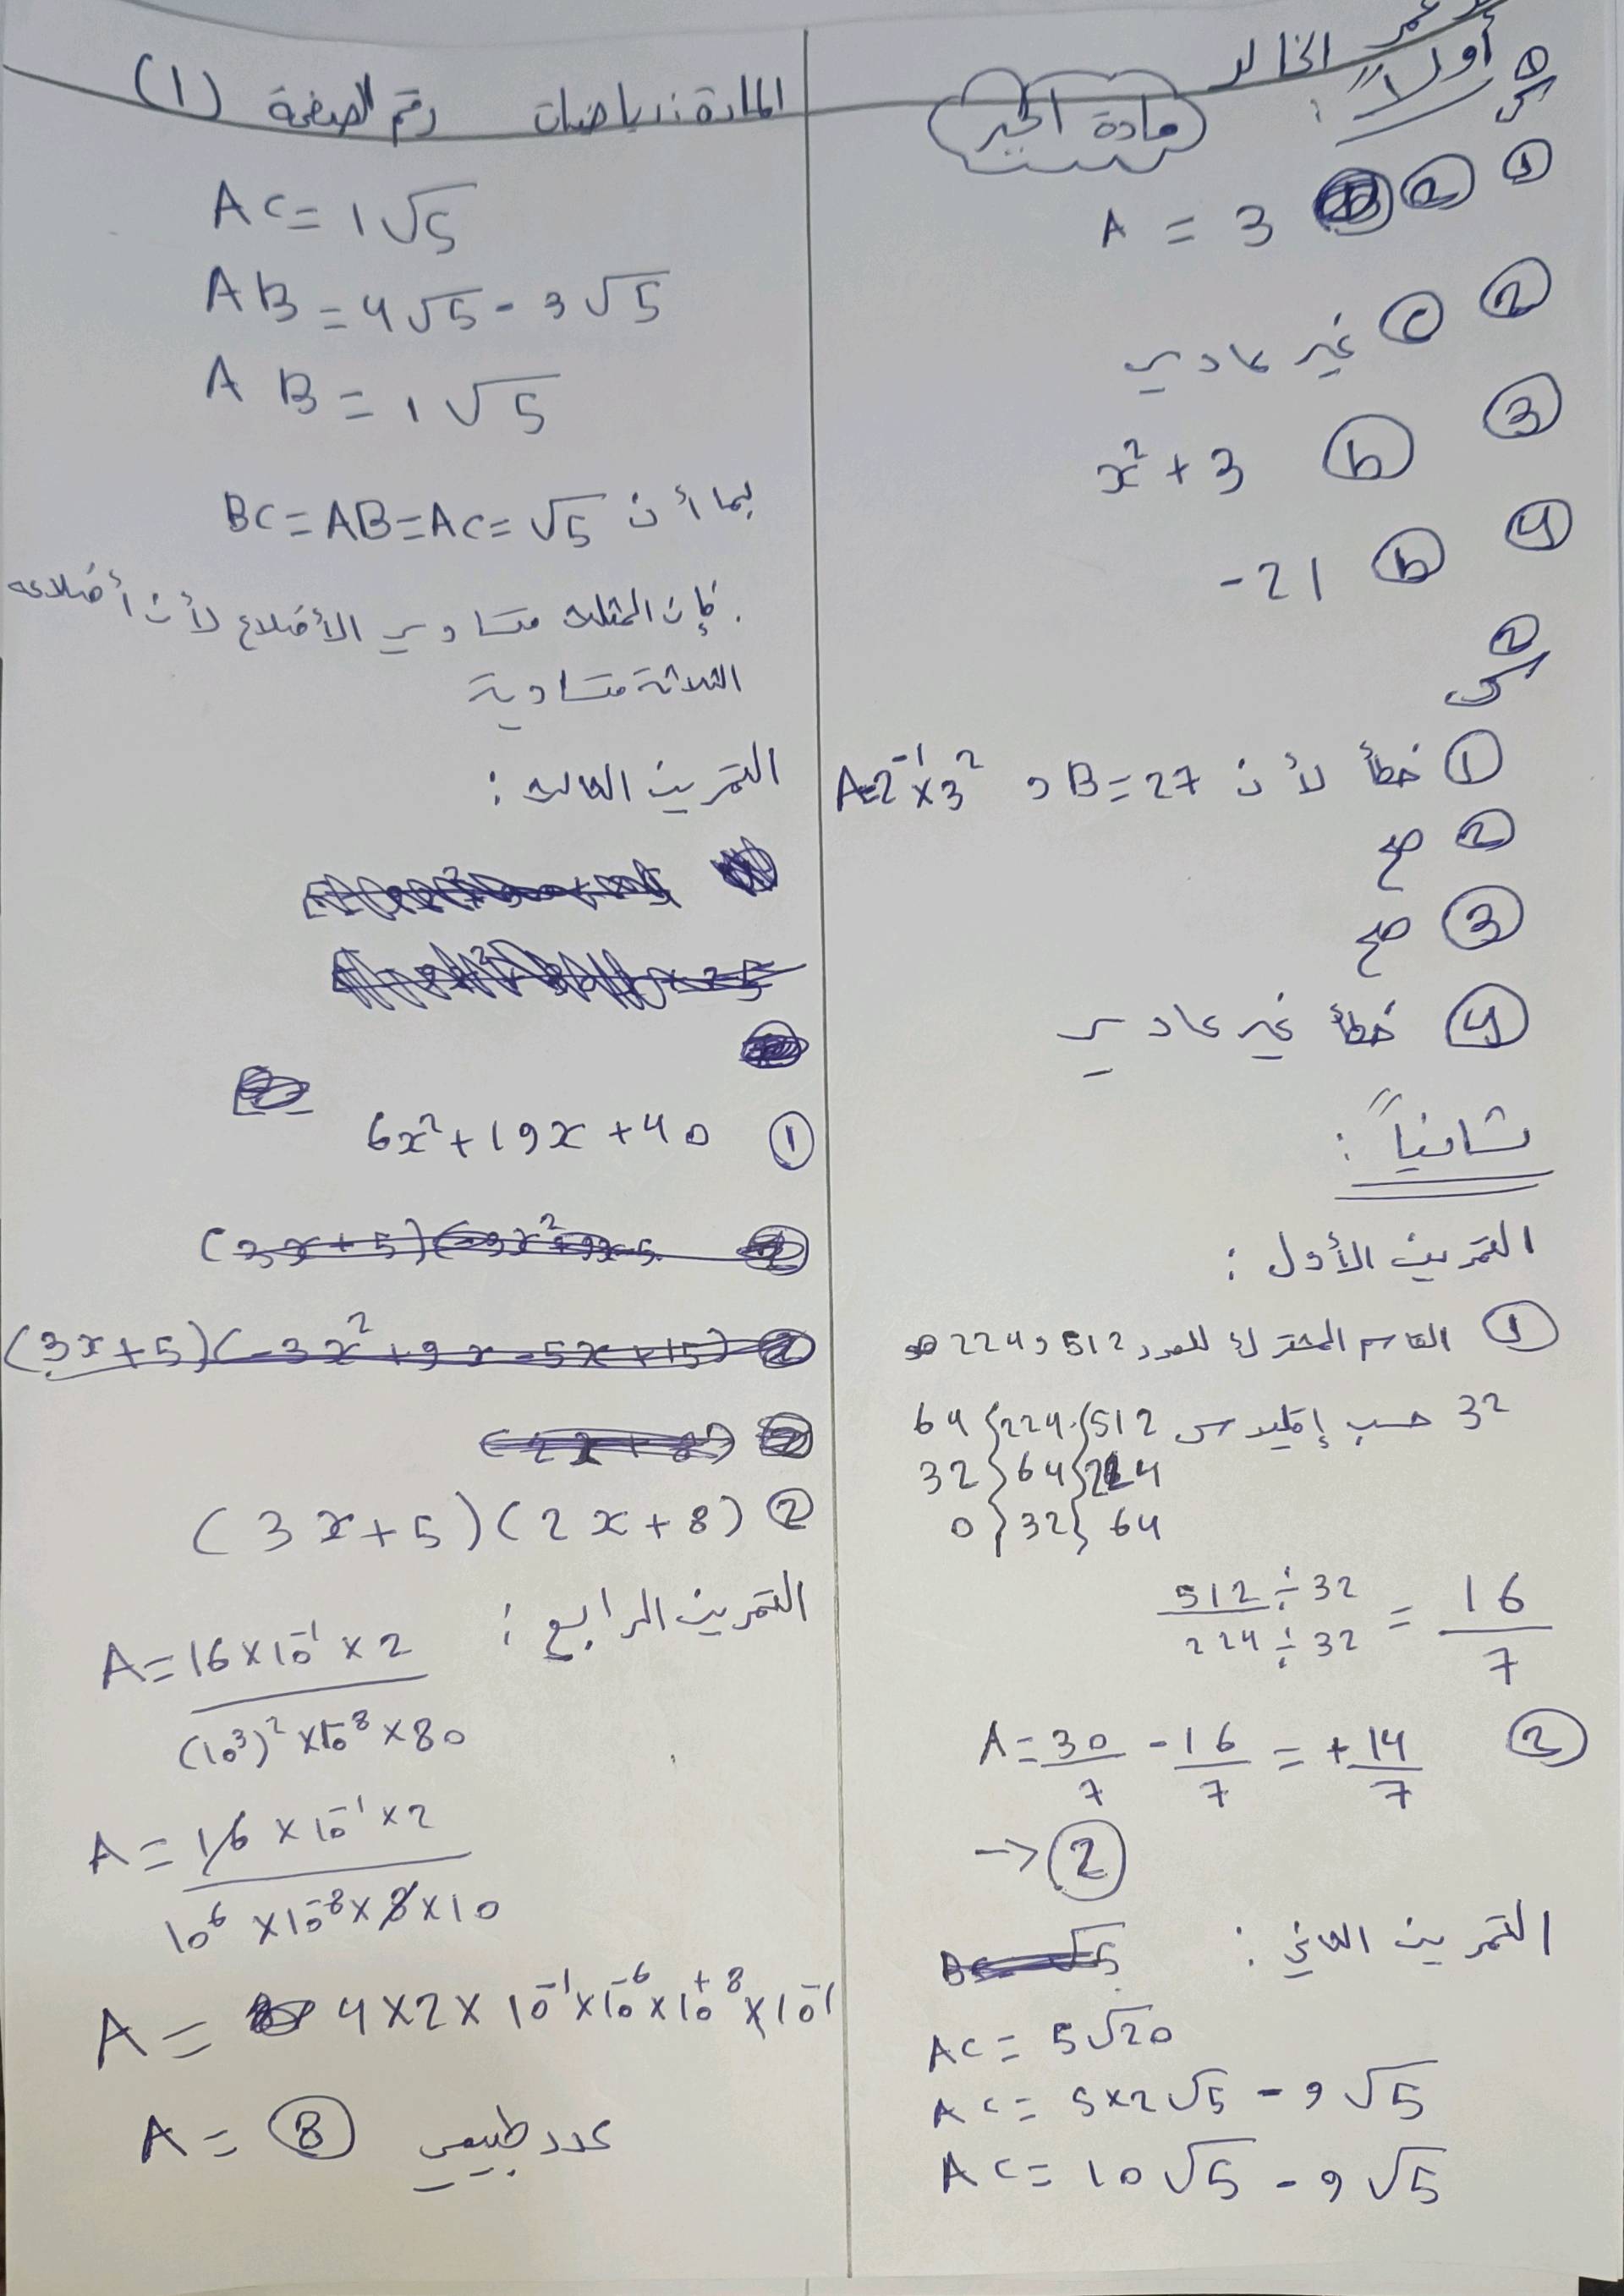 عمر الخالد
المادة: رياضيات رقم الصفحة (1)
أولاً:
مادة الجبر
س1
① ② A = 3
② C غير عادي
③ b x² + 3
④ b -21
س2
① خطأ لأن B = 27 و A=2⁻¹×3²
② صح
③ صح
④ خطأ غير عادي
ثانياً:
التمرين الأول:
① القاسم المشترك للعدد 512 و 224
32 حسب إقليدس 512 } 224 } 64
224 } 64 } 32
64 } 32 } 0
512 ÷ 32 / 224 ÷ 32 = 16 / 7
② A = 30/7 - 16/7 = +14/7
→ ②
التمرين الثاني:
AC = 5√20
AC = 5×2√5 - 9√5
AC = 10√5 - 9√5
AC = 1√5
AB = 4√5 - 3√5
AB = 1√5
بما أن BC = AB = AC = √5
فإن المثلث متساوي الأضلاع لأن أضلاعه
الثلاثة متساوية
التمرين الثالث:
① 6x² + 19x + 40
(3x+5)(-3x²+9x-5x+15) ②
② (3x+5)(2x+8)
التمرين الرابع:
A = 16×10⁻¹×2 / (10³)²×10⁻⁸×80
A = 16×10⁻¹×2 / 10⁶×10⁻⁸×8×10
A = 4×2×10⁻¹×10⁻⁶×10⁺⁸×10⁻¹
A = ⑧ عدد طبيعي